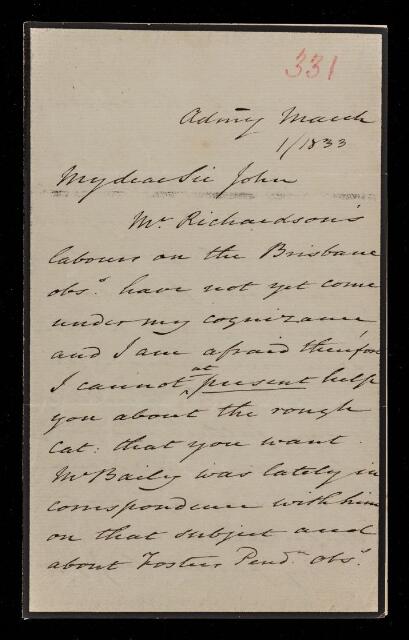 331
Admty March
1/1833
My dear Sir John
Mr Richardson's
labours on the Brisbane
obs.ns have not yet come
under my cognizance,
and I am afraid therefore
I cannot at present help
you about the rough
Cat: that you want.
Mr Baily was lately in
correspondence with him
on that subject and
about Foster Pend.m obs.ns